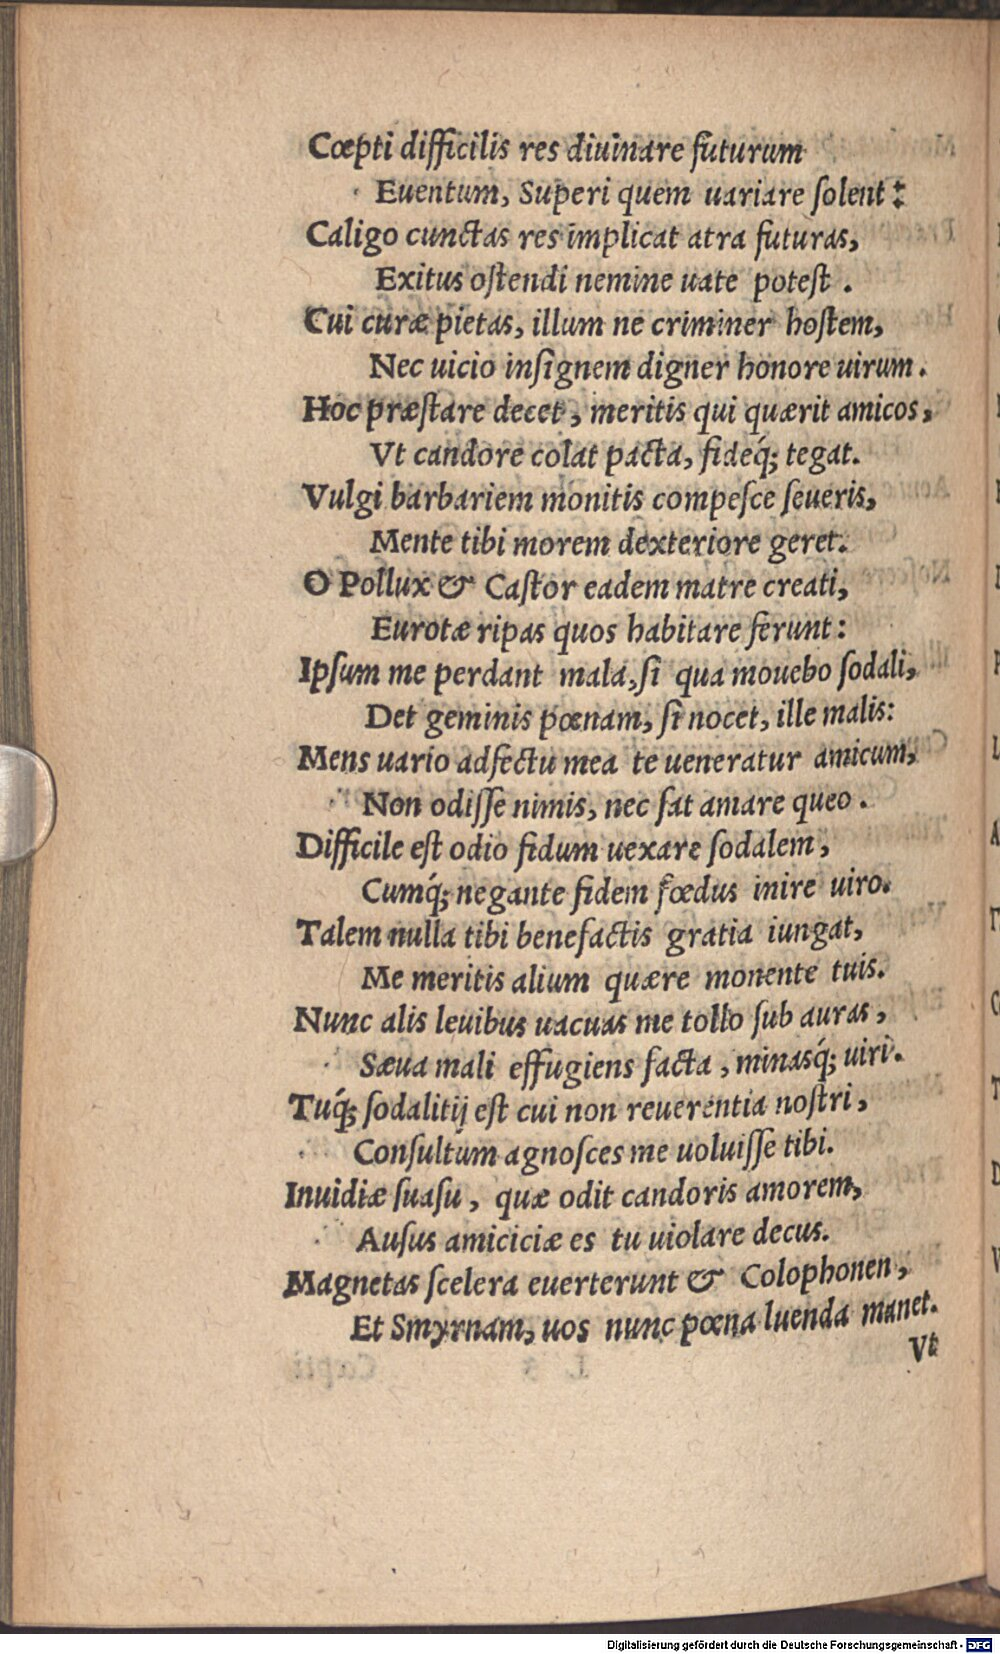 Cœpti difficilis res diuinare futurum
Euentum, Superi quem uariare ſolent:
Caligo cunctas res implicat atra futuras,
Exitus oſtendi nemine uate poteſt.
Cui curæ pietas, illum ne criminer hoſtem,
Nec uicio inſignem digner honore uirum.
Hoc præſtare decet, meritis qui quærit amicos,
Vt candore colat pacta, fideq́; tegat.
Vulgi barbariem monitis compeſce ſeueris,
Mente tibi morem dexteriore geret.
O Pollux & Caſtor eadem matre creati,
Eurotæ ripas quos habitare ferunt:
Ipſum me perdant mala, ſi qua mouebo ſodali,
Det geminis pœnam, ſi nocet, ille malis:
Mens uario adfectu mea te ueneratur amicum,
Non odiſſe nimis, nec ſat amare queo.
Difficile eſt odio fidum uexare ſodalem,
Cumq́; negante fidem fœdus inire uiro.
Talem nulla tibi benefactis gratia iungat,
Me meritis alium quære monente tuis.
Nunc alis leuibus uacuas me tollo ſub auras,
Sæua mali effugiens facta, minasq́; uiri.
Tuq́; ſodalitij eſt cui non reuerentia noſtri,
Conſultum agnoſces me uoluiſſe tibi.
Inuidiæ ſuaſu, quæ odit candoris amorem,
Auſus amiciciæ es tu uiolare decus.
Magnetas ſcelera euerterunt & Colophonen,
Et Smyrnam, uos nunc pœna luenda manet.
Vt
Digitalisierung gefördert durch die Deutsche Forschungsgemeinschaft - DFG